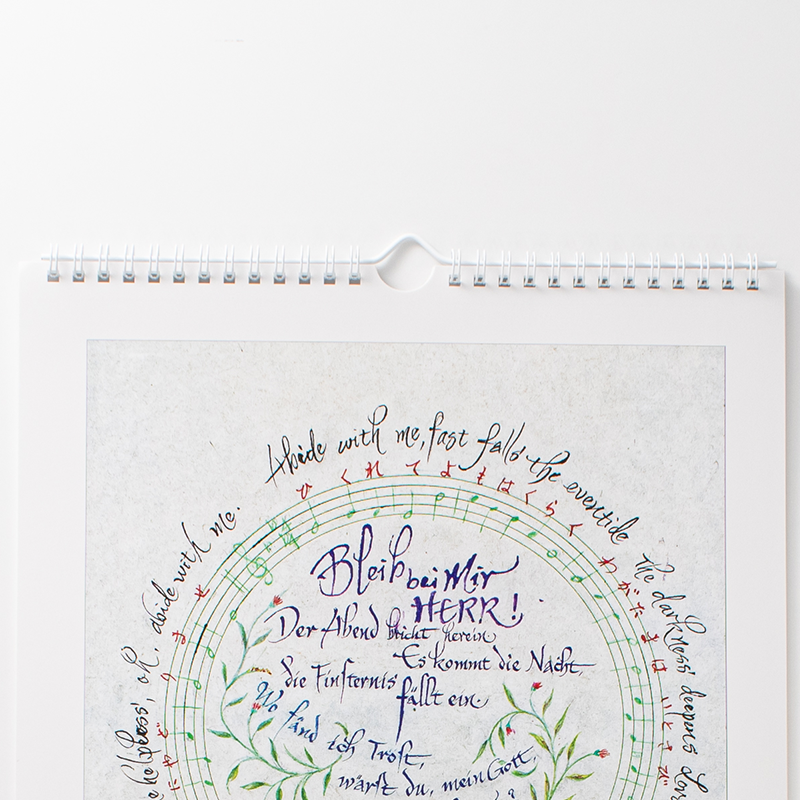 Abide with me, fast falls the eventide
the darkness deepens
helpless, oh, abide with me.
ひくれてよもはくらく
わがたまは
Bleib bei Mir
HERR!
Der Abend bricht herein
Es kommt die Nacht,
die Finsternis
fällt ein.
Wo fänd ich Trost,
wärst du, mein Gott,